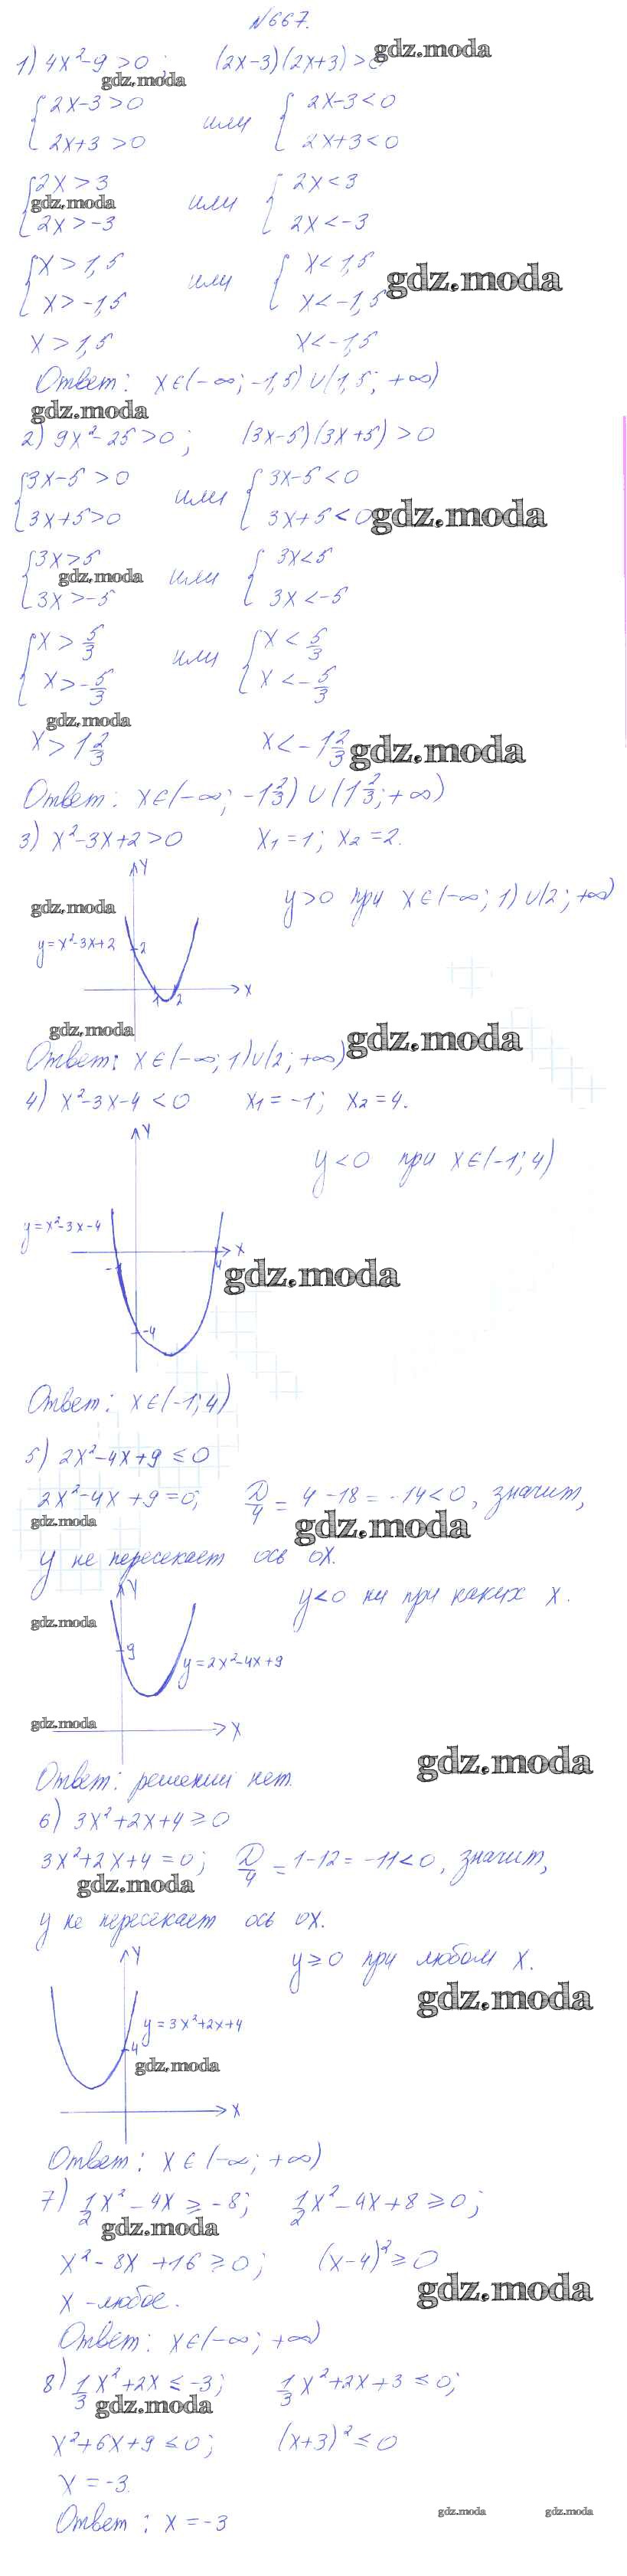 №667.
1) 4x²-9>0; (2x-3)(2x+3)>0
gdz.moda
gdz.moda
{2x-3>0 или {2x-3<0
2x+3>0 2x+3<0
{2x>3 или {2x<3
gdz.moda
2x>-3 2x<-3
{x>1,5 или {x<1,5
x>-1,5 x<-1,5
gdz.moda
x>1,5 x<-1,5
Ответ: x∈(-∞; -1,5)∪(1,5; +∞)
gdz.moda
2) 9x²-25>0; (3x-5)(3x+5)>0
{3x-5>0 или {3x-5<0
3x+5>0 3x+5<0
gdz.moda
{3x>5 или {3x<5
gdz.moda
3x>-5 3x<-5
{x>5/3 или {x<5/3
x>-5/3 x<-5/3
gdz.moda
x>1 2/3 x<-1 2/3
gdz.moda
Ответ: x∈(-∞; -1 2/3)∪(1 2/3; +∞)
3) x²-3x+2>0 x₁=1; x₂=2.
y
gdz.moda
y>0 при x∈(-∞; 1)∪(2; +∞)
y=x²-3x+2
2
1 2 x
gdz.moda
gdz.moda
Ответ: x∈(-∞; 1)∪(2; +∞)
4) x²-3x-4<0 x₁=-1; x₂=4.
y
y<0 при x∈(-1; 4)
y=x²-3x-4
x
-1 4
gdz.moda
-4
Ответ: x∈(-1; 4)
5) 2x²-4x+9≤0
2x²-4x+9=0; D/4=4-18=-14<0, значит,
gdz.moda
gdz.moda
y не пересекает ось ox.
y
y<0 ни при каких x.
gdz.moda
9
y=2x²-4x+9
gdz.moda
x
gdz.moda
Ответ: решений нет.
6) 3x²+2x+4≥0
3x²+2x+4=0; D/4=1-12=-11<0, значит,
gdz.moda
y не пересекает ось ox.
y
y≥0 при любом x.
gdz.moda
y=3x²+2x+4
4
gdz.moda
x
Ответ: x∈(-∞; +∞)
7) 1/2x²-4x≥-8; 1/2x²-4x+8≥0;
gdz.moda
x²-8x+16≥0; (x-4)²≥0
gdz.moda
x-любое.
Ответ: x∈(-∞; +∞)
8) 1/3x²+2x≤-3; 1/3x²+2x+3≤0;
gdz.moda
x²+6x+9≤0; (x+3)²≤0
x=-3.
gdz.moda gdz.moda
Ответ: x=-3